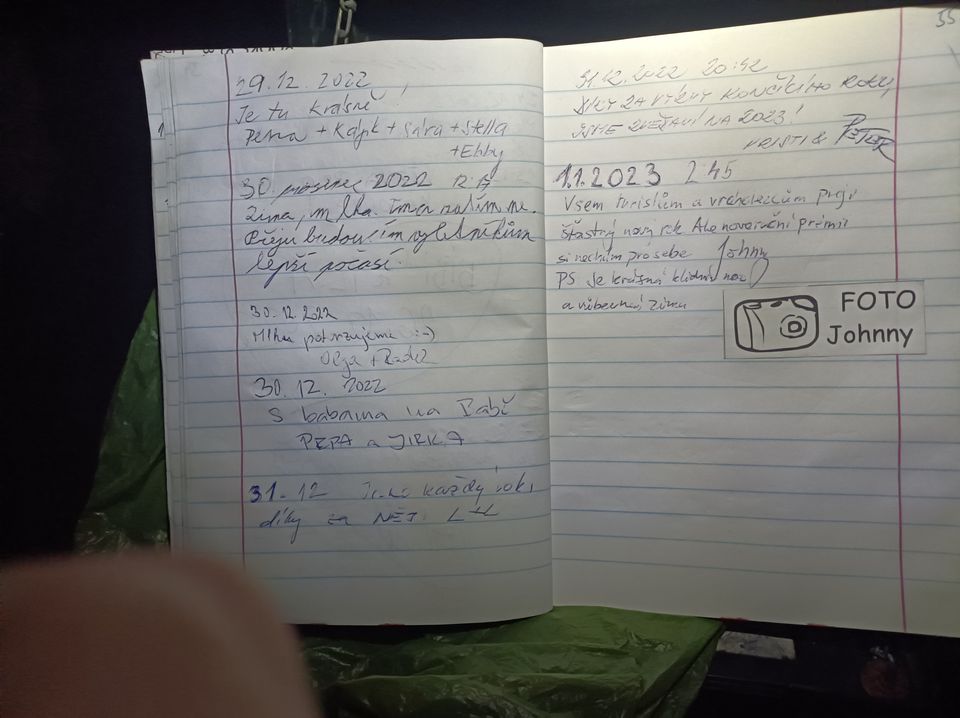 29.12.2022
Je tu krásně!
Petra + Kájík + Sára + Stella
+ Ebby
30. prosinec 2022
Zima, mlha.
Přeju budoucím výletníkům
lepší počasí.
30.12.2022
Mlhu potvrzujeme :-)
Olga + Radek
30.12.2022
S babama na Babě
PEPA a JIRKA
31.12 každý rok,
díky za
55
31.12.2022 20:42
KONČÍCÍHO ROKU,
JSME ZVĚDAVÍ NA 2023!
KRISTI & PETER
1.1.2023 2:45
Všem turistům a vrcholařům přeji
šťastný nový rok Ale novoroční prémii
si nechám pro sebe Johny
PS Je krásná klidná noc
a vůbec ná zima
FOTO
Johnny